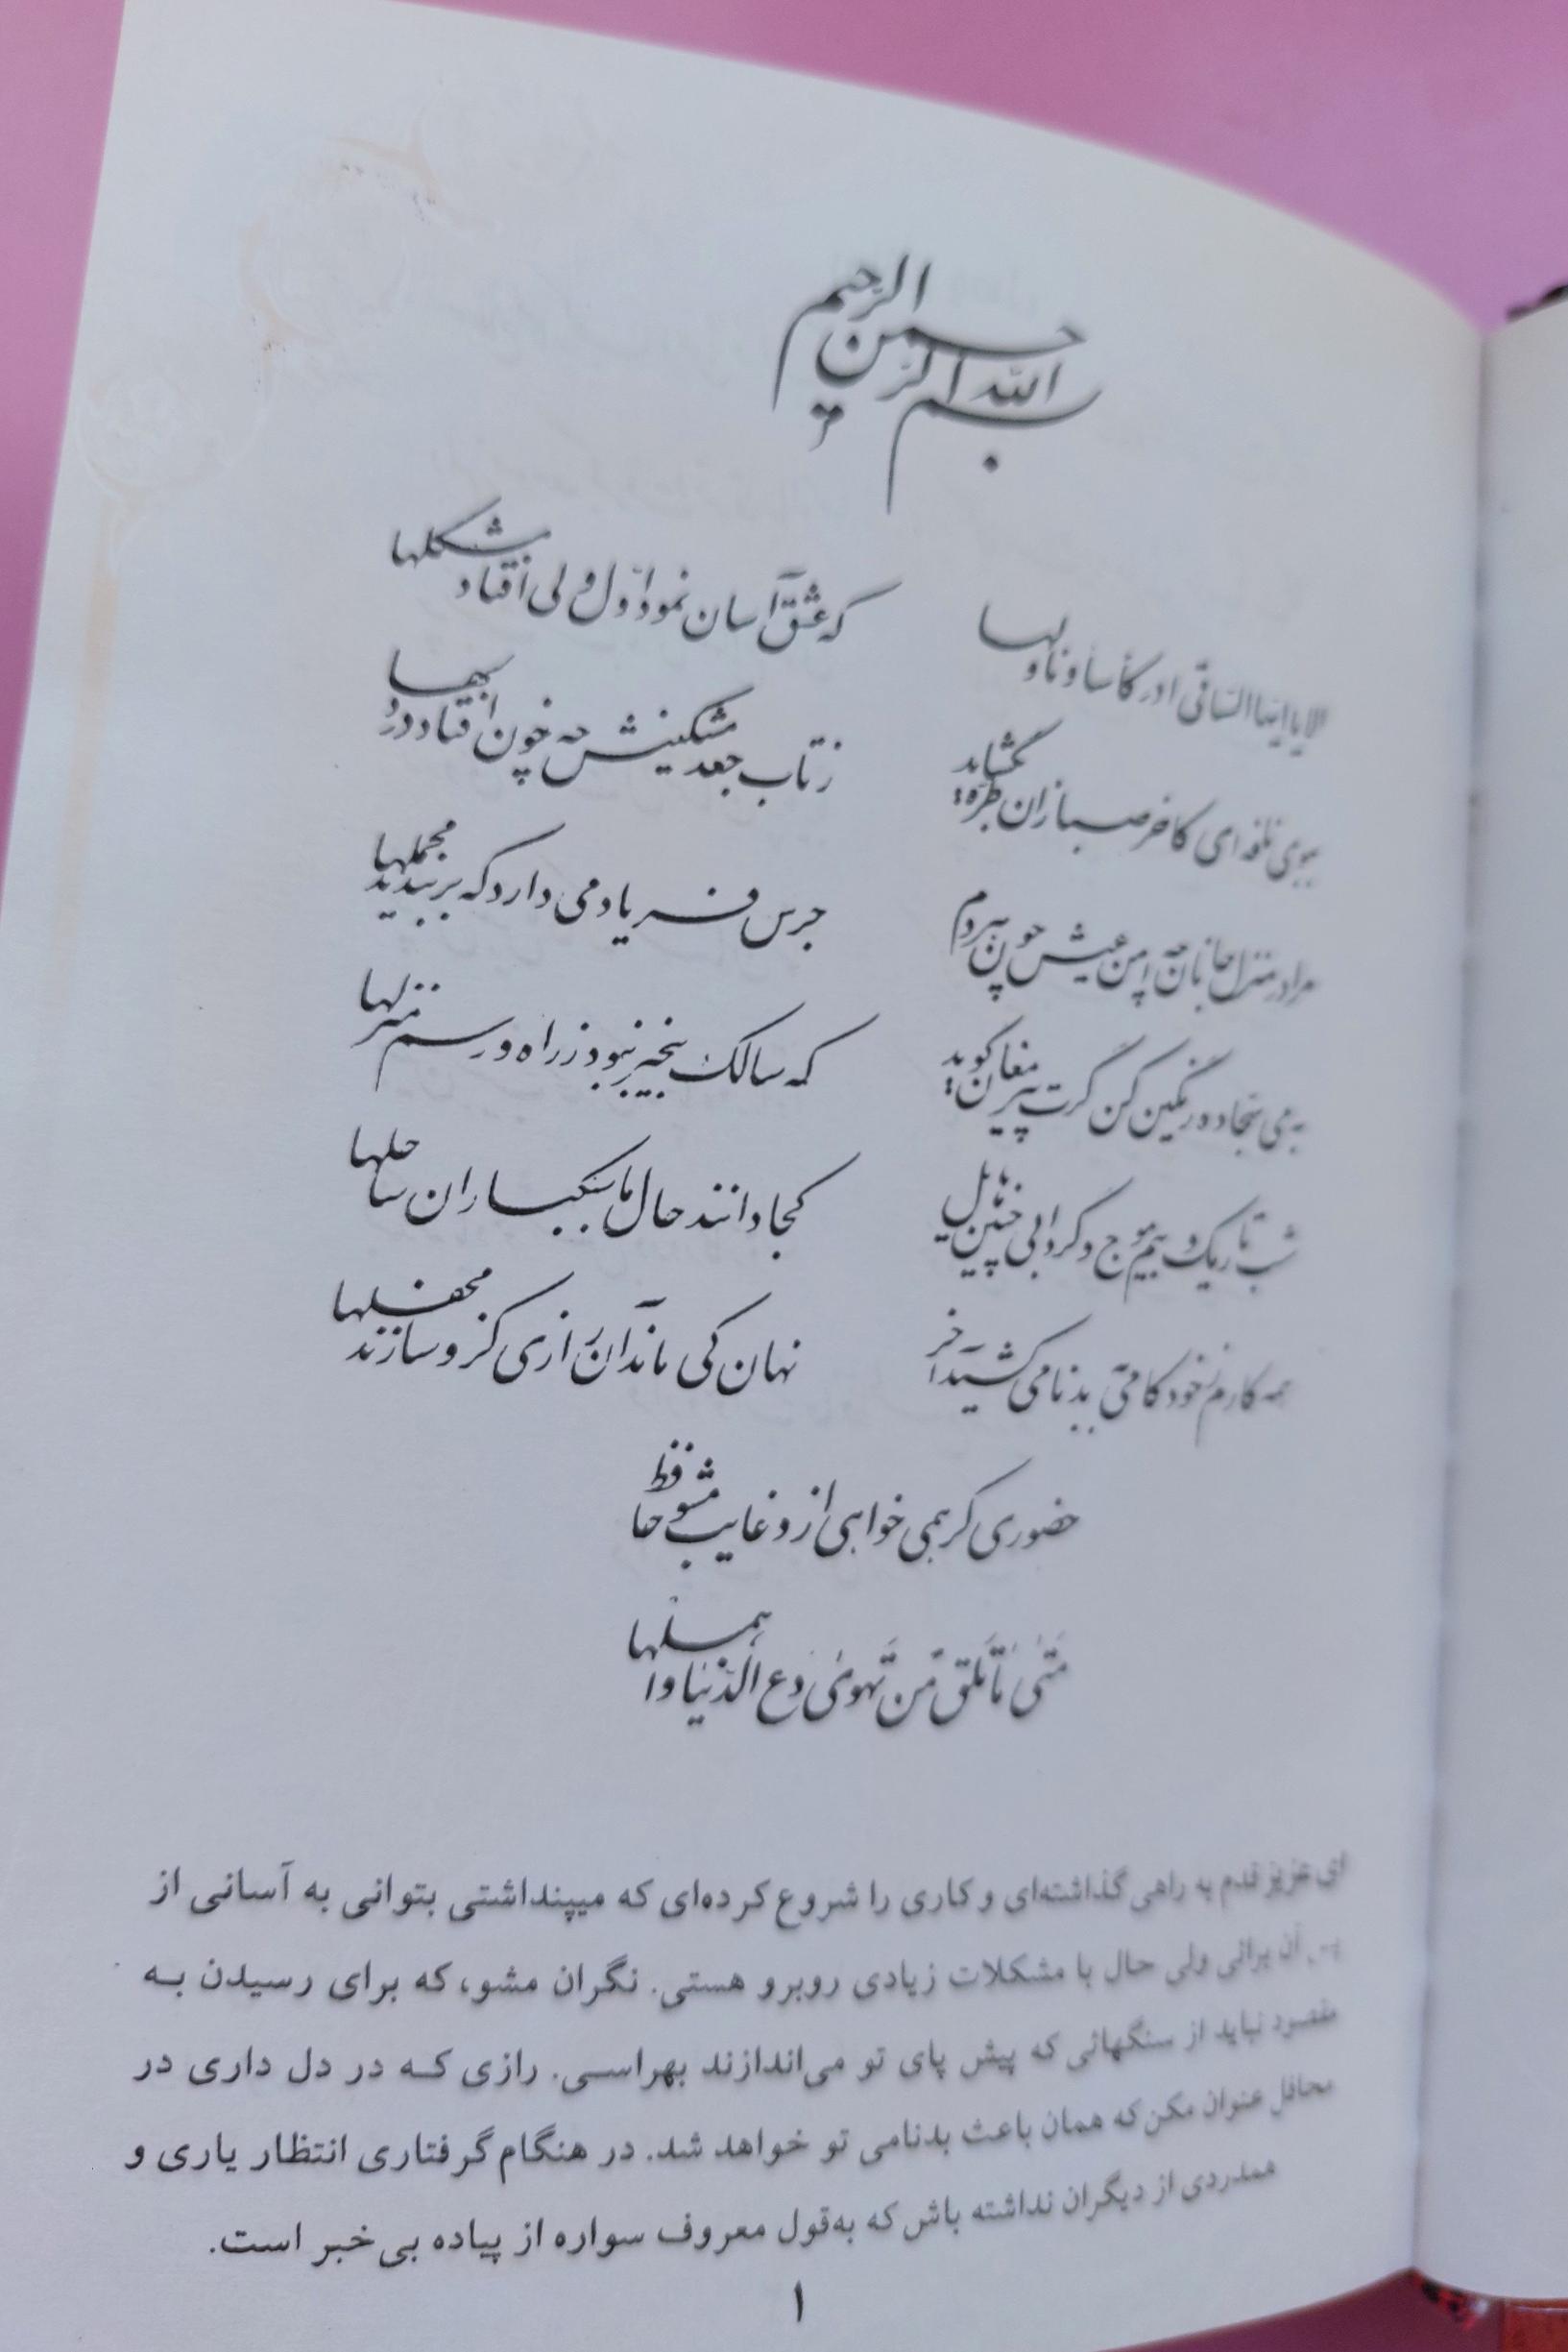 بسم الله الرحمن الرحیم
الا یا ایها الساقی ادر کأسا و ناولها
که عشق آسان نمود اوّل ولی افتاد مشکلها
ببوی نافه‌ای کاخر صبا زان طرّه بگشاید
ز تاب جعد مشکینش چه خون افتاد در دلها
مرا در منزل جانان چه امن عیش چون هر دم
جرس فریاد می دارد که بربندید محملها
به می سجاده رنگین کن گرت پیر مغان گوید
که سالک بیخبر نبود ز راه و رسم منزلها
شب تاریک و بیم موج و گردابی چنین هایل
کجا دانند حال ما سبکباران ساحلها
همه کارم ز خود کامی به بدنامی کشید آخر
نهان کی ماند آن رازی کزو سازند محفلها
حضوری گر همی خواهی ازو غایب مشو حافظ
مَتیٰ ما تَلقَ مَن تَهویٰ دَعِ الدّنیا و اَهمِلها
ای عزیز قدم به راهی گذاشته‌ای و کاری را شروع کرده‌ای که میپنداشتی بتوانی به آسانی از
آن برائی ولی حال با مشکلات زیادی روبرو هستی. نگران مشو، که برای رسیدن به
مقصود نباید از سنگهائی که پیش پای تو می‌اندازند بهراسی. رازی که در دل داری در
محافل عنوان مکن که همان باعث بدنامی تو خواهد شد. در هنگام گرفتاری انتظار یاری و
همدردی از دیگران نداشته باش که به‌قول معروف سواره از پیاده بی خبر است.
۱